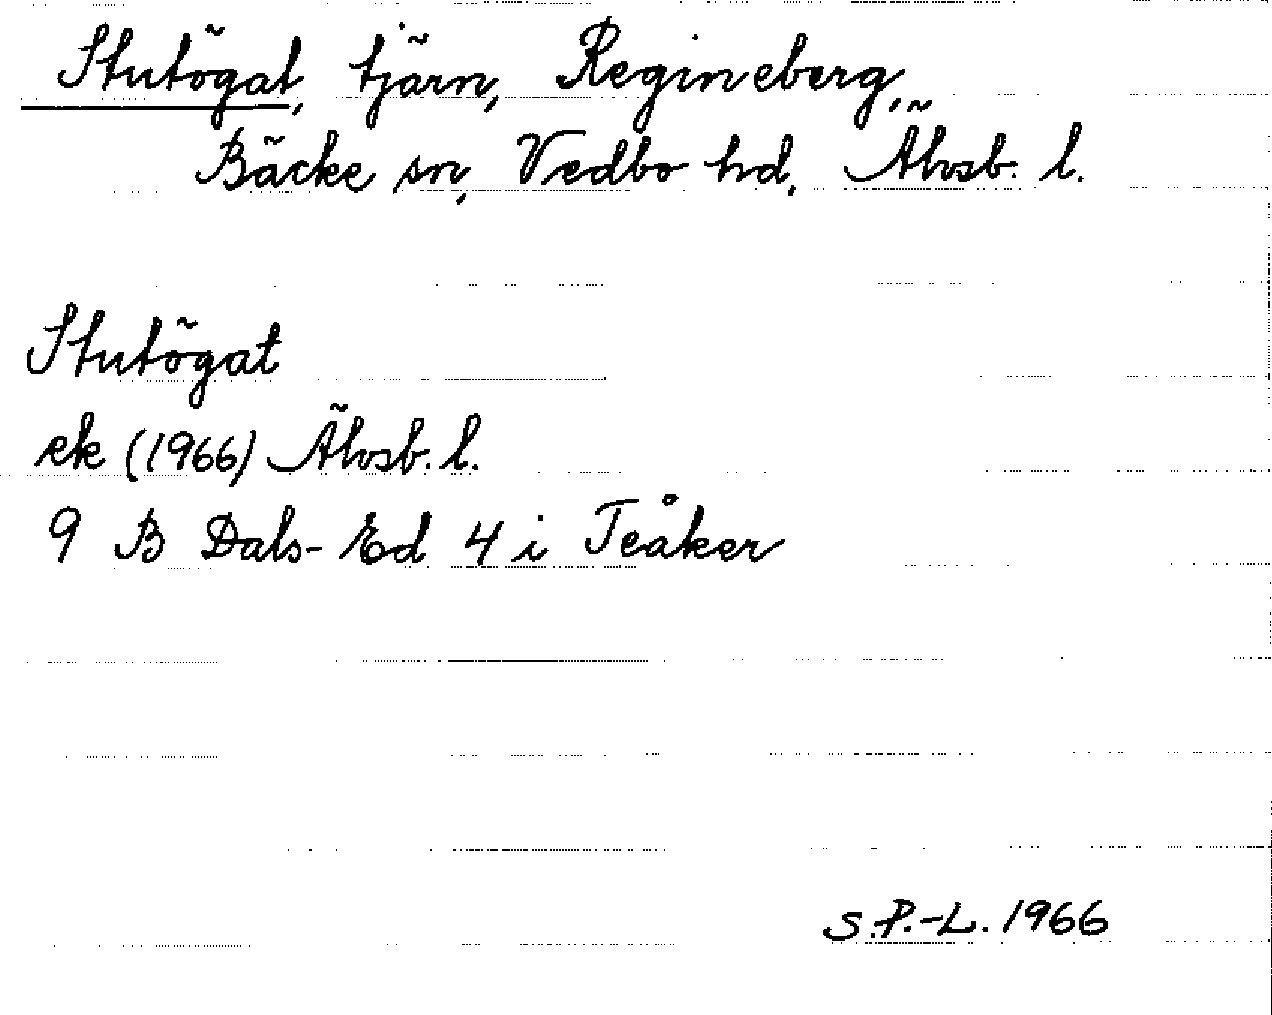 Stutögat, tjärn, Regineberg,
Bäcke sn, Vedbo hd, Älvsb. l.
Stutögat
ek (1966) Älvsb. l.
9 B Dals-Ed 4 i Teåker
S.P.-L. 1966